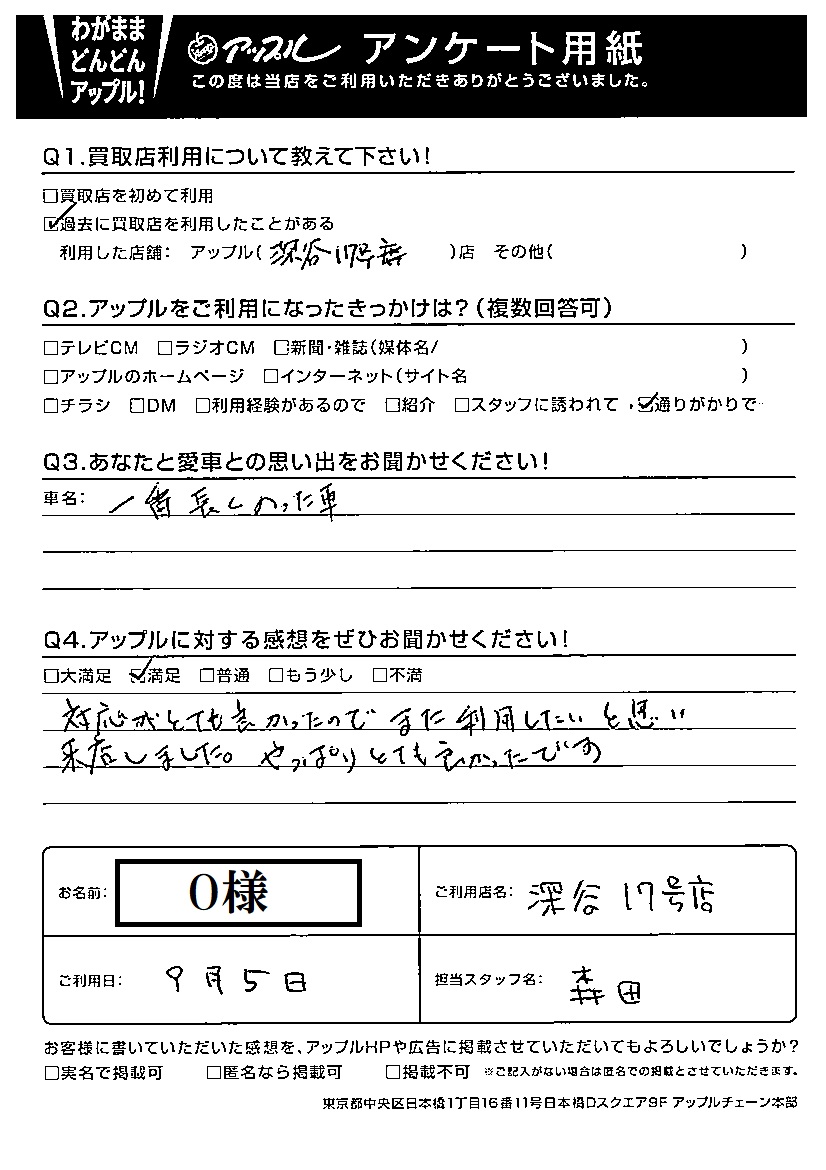 わがまま
どんどん
アップル!
アップル アンケート用紙
この度は当店をご利用いただきありがとうございました。
Q1.買取店利用について教えて下さい!
□買取店を初めて利用
☑過去に買取店を利用したことがある
利用した店舗: アップル( 深谷17号店 )店 その他( )
Q2.アップルをご利用になったきっかけは?(複数回答可)
□テレビCM □ラジオCM □新聞・雑誌(媒体名/ )
□アップルのホームページ □インターネット(サイト名 )
□チラシ □DM □利用経験があるので □紹介 □スタッフに誘われて ☑通りがかりで
Q3.あなたと愛車との思い出をお聞かせください!
車名: 一番長くのった車
Q4.アップルに対する感想をぜひお聞かせください!
□大満足 ☑満足 □普通 □もう少し □不満
対応がとても良かったので また利用したいと思い
来店しました。やっぱりとても良かったです
お名前: O様
ご利用店名: 深谷17号店
ご利用日: 9月5日
担当スタッフ名: 森田
お客様に書いていただいた感想を、アップルHPや広告に掲載させていただいてもよろしいでしょうか?
□実名で掲載可 □匿名なら掲載可 □掲載不可 ※ご記入がない場合は匿名での掲載とさせていただきます。
東京都中央区日本橋1丁目16番11号日本橋Dスクエア9F アップルチェーン本部